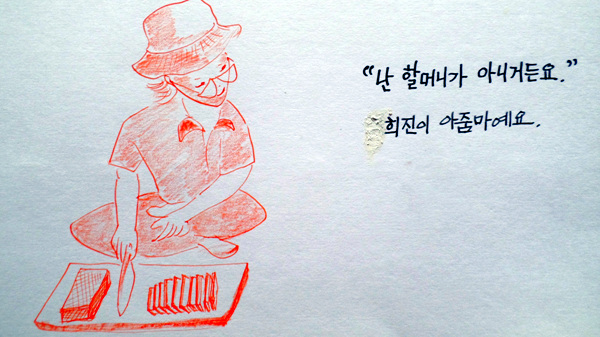 “난 할머니가 아니거든요.”
희진이 아줌마예요.